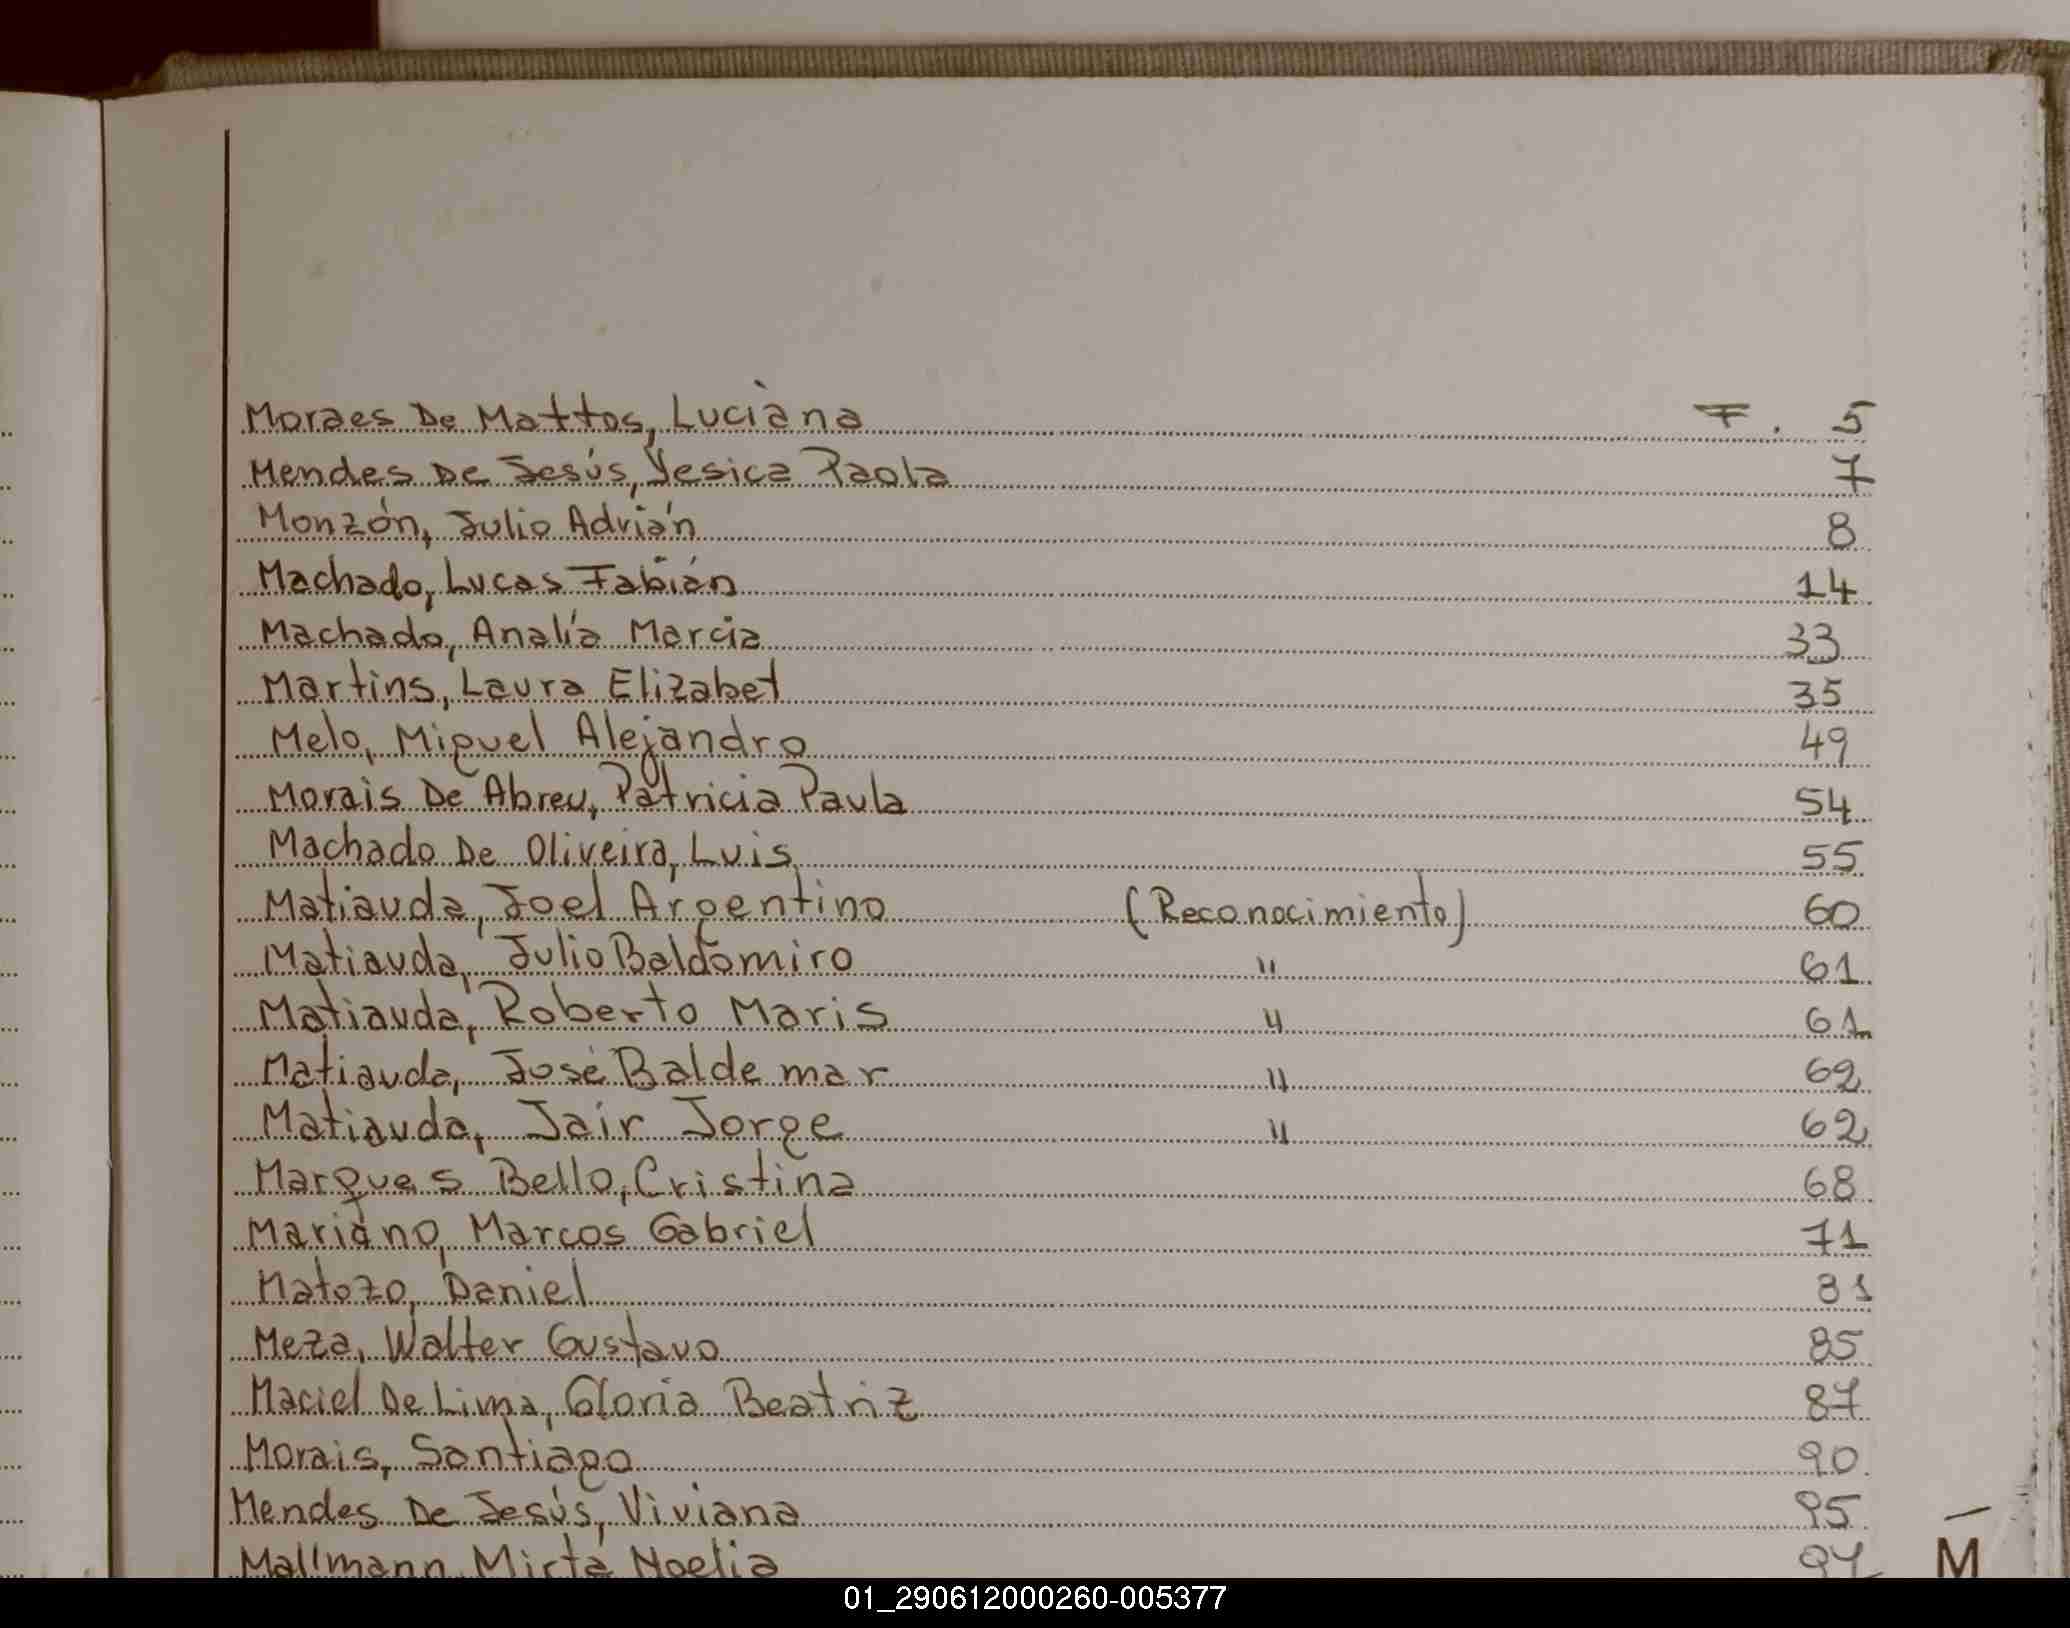 Moraes De Mattos, Luciana F. 5
Mendes De Jesús, Yesica Paola 7
Monzón, Julio Adrián 8
Machado, Lucas Fabián 14
Machado, Analía Marcia 33
Martins, Laura Elizabet 35
Melo, Miguel Alejandro 49
Morais De Abreu, Patricia Paula 54
Machado De Oliveira, Luis 55
Matiauda, Joel Argentino (Reconocimiento) 60
Matiauda, Julio Baldomiro " 61
Matiauda, Roberto Maris " 61
Matiauda, José Baldemar " 62
Matiauda, Jair Jorge " 62
Marques Bello, Cristina 68
Mariano, Marcos Gabriel 71
Matozo, Daniel 81
Meza, Walter Gustavo 85
Maciel De Lima, Gloria Beatriz 87
Morais, Santiago 90
Mendes De Jesús, Viviana 95
Mallmann, Mirta Noelia
M
01_290612000260-005377